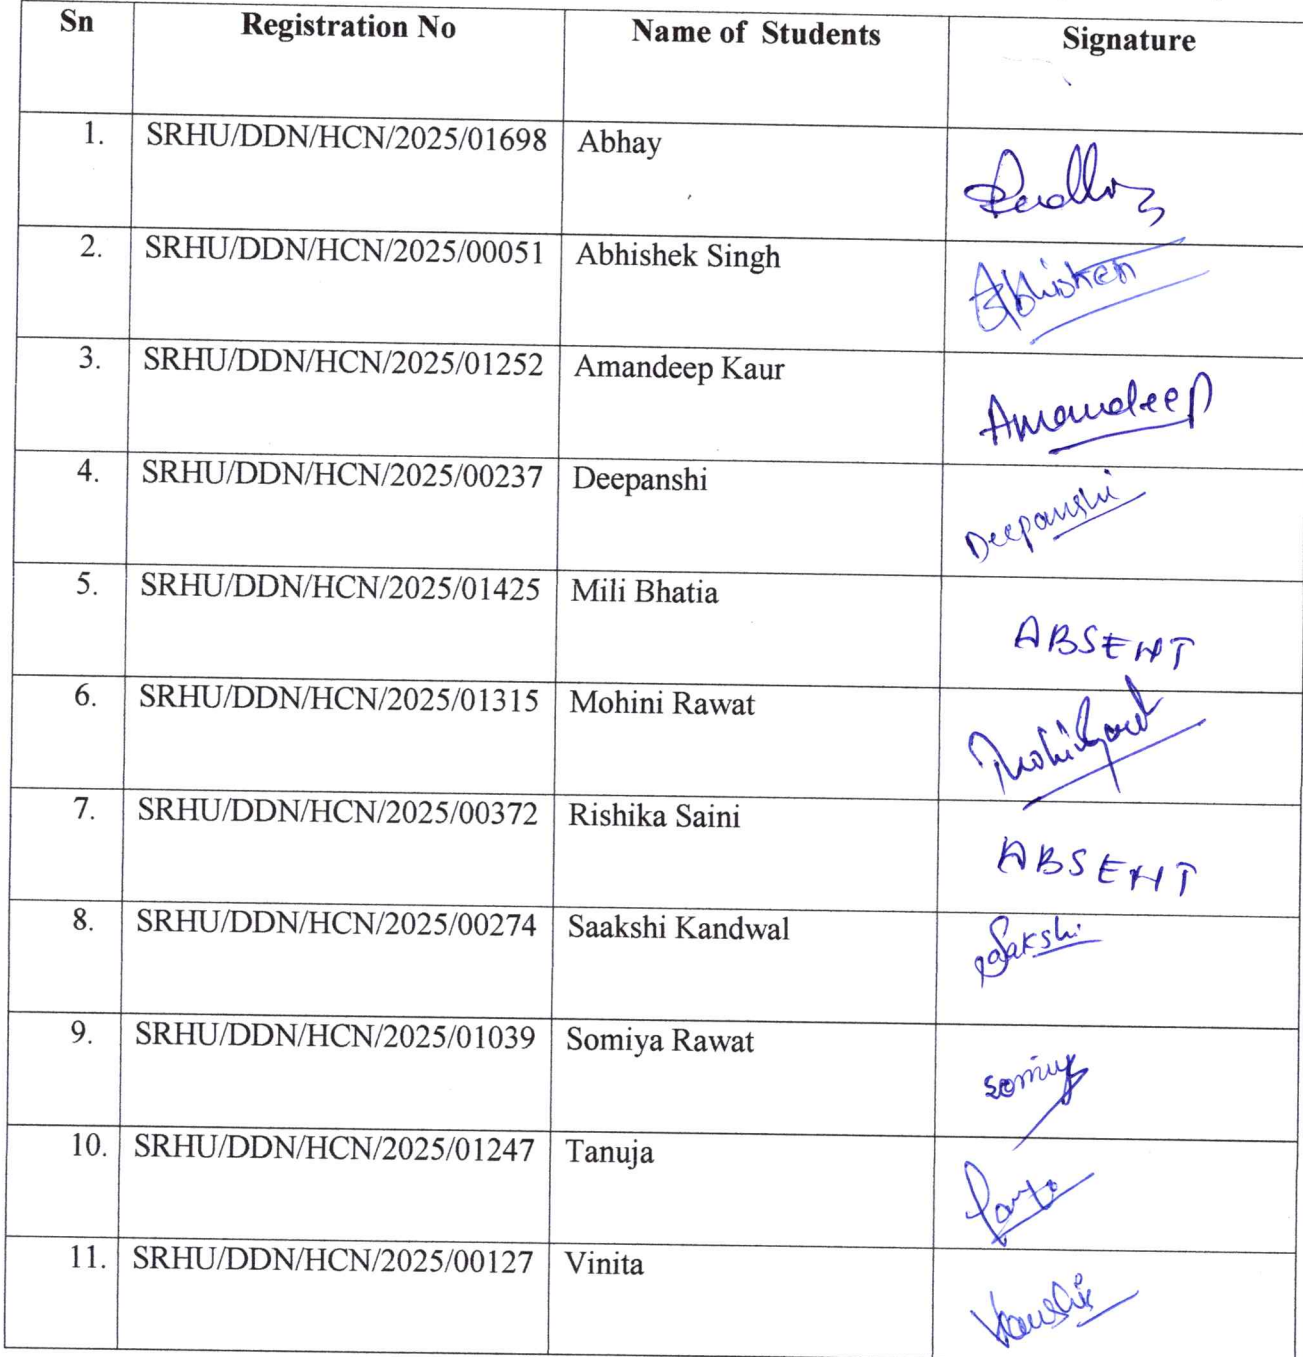 Sn Registration No Name of Students Signature
1. SRHU/DDN/HCN/2025/01698 Abhay
2. SRHU/DDN/HCN/2025/00051 Abhishek Singh Abhishek
3. SRHU/DDN/HCN/2025/01252 Amandeep Kaur Amandeep
4. SRHU/DDN/HCN/2025/00237 Deepanshi Deepanshi
5. SRHU/DDN/HCN/2025/01425 Mili Bhatia ABSENT
6. SRHU/DDN/HCN/2025/01315 Mohini Rawat
7. SRHU/DDN/HCN/2025/00372 Rishika Saini ABSENT
8. SRHU/DDN/HCN/2025/00274 Saakshi Kandwal Saakshi
9. SRHU/DDN/HCN/2025/01039 Somiya Rawat Somiya
10. SRHU/DDN/HCN/2025/01247 Tanuja
11. SRHU/DDN/HCN/2025/00127 Vinita